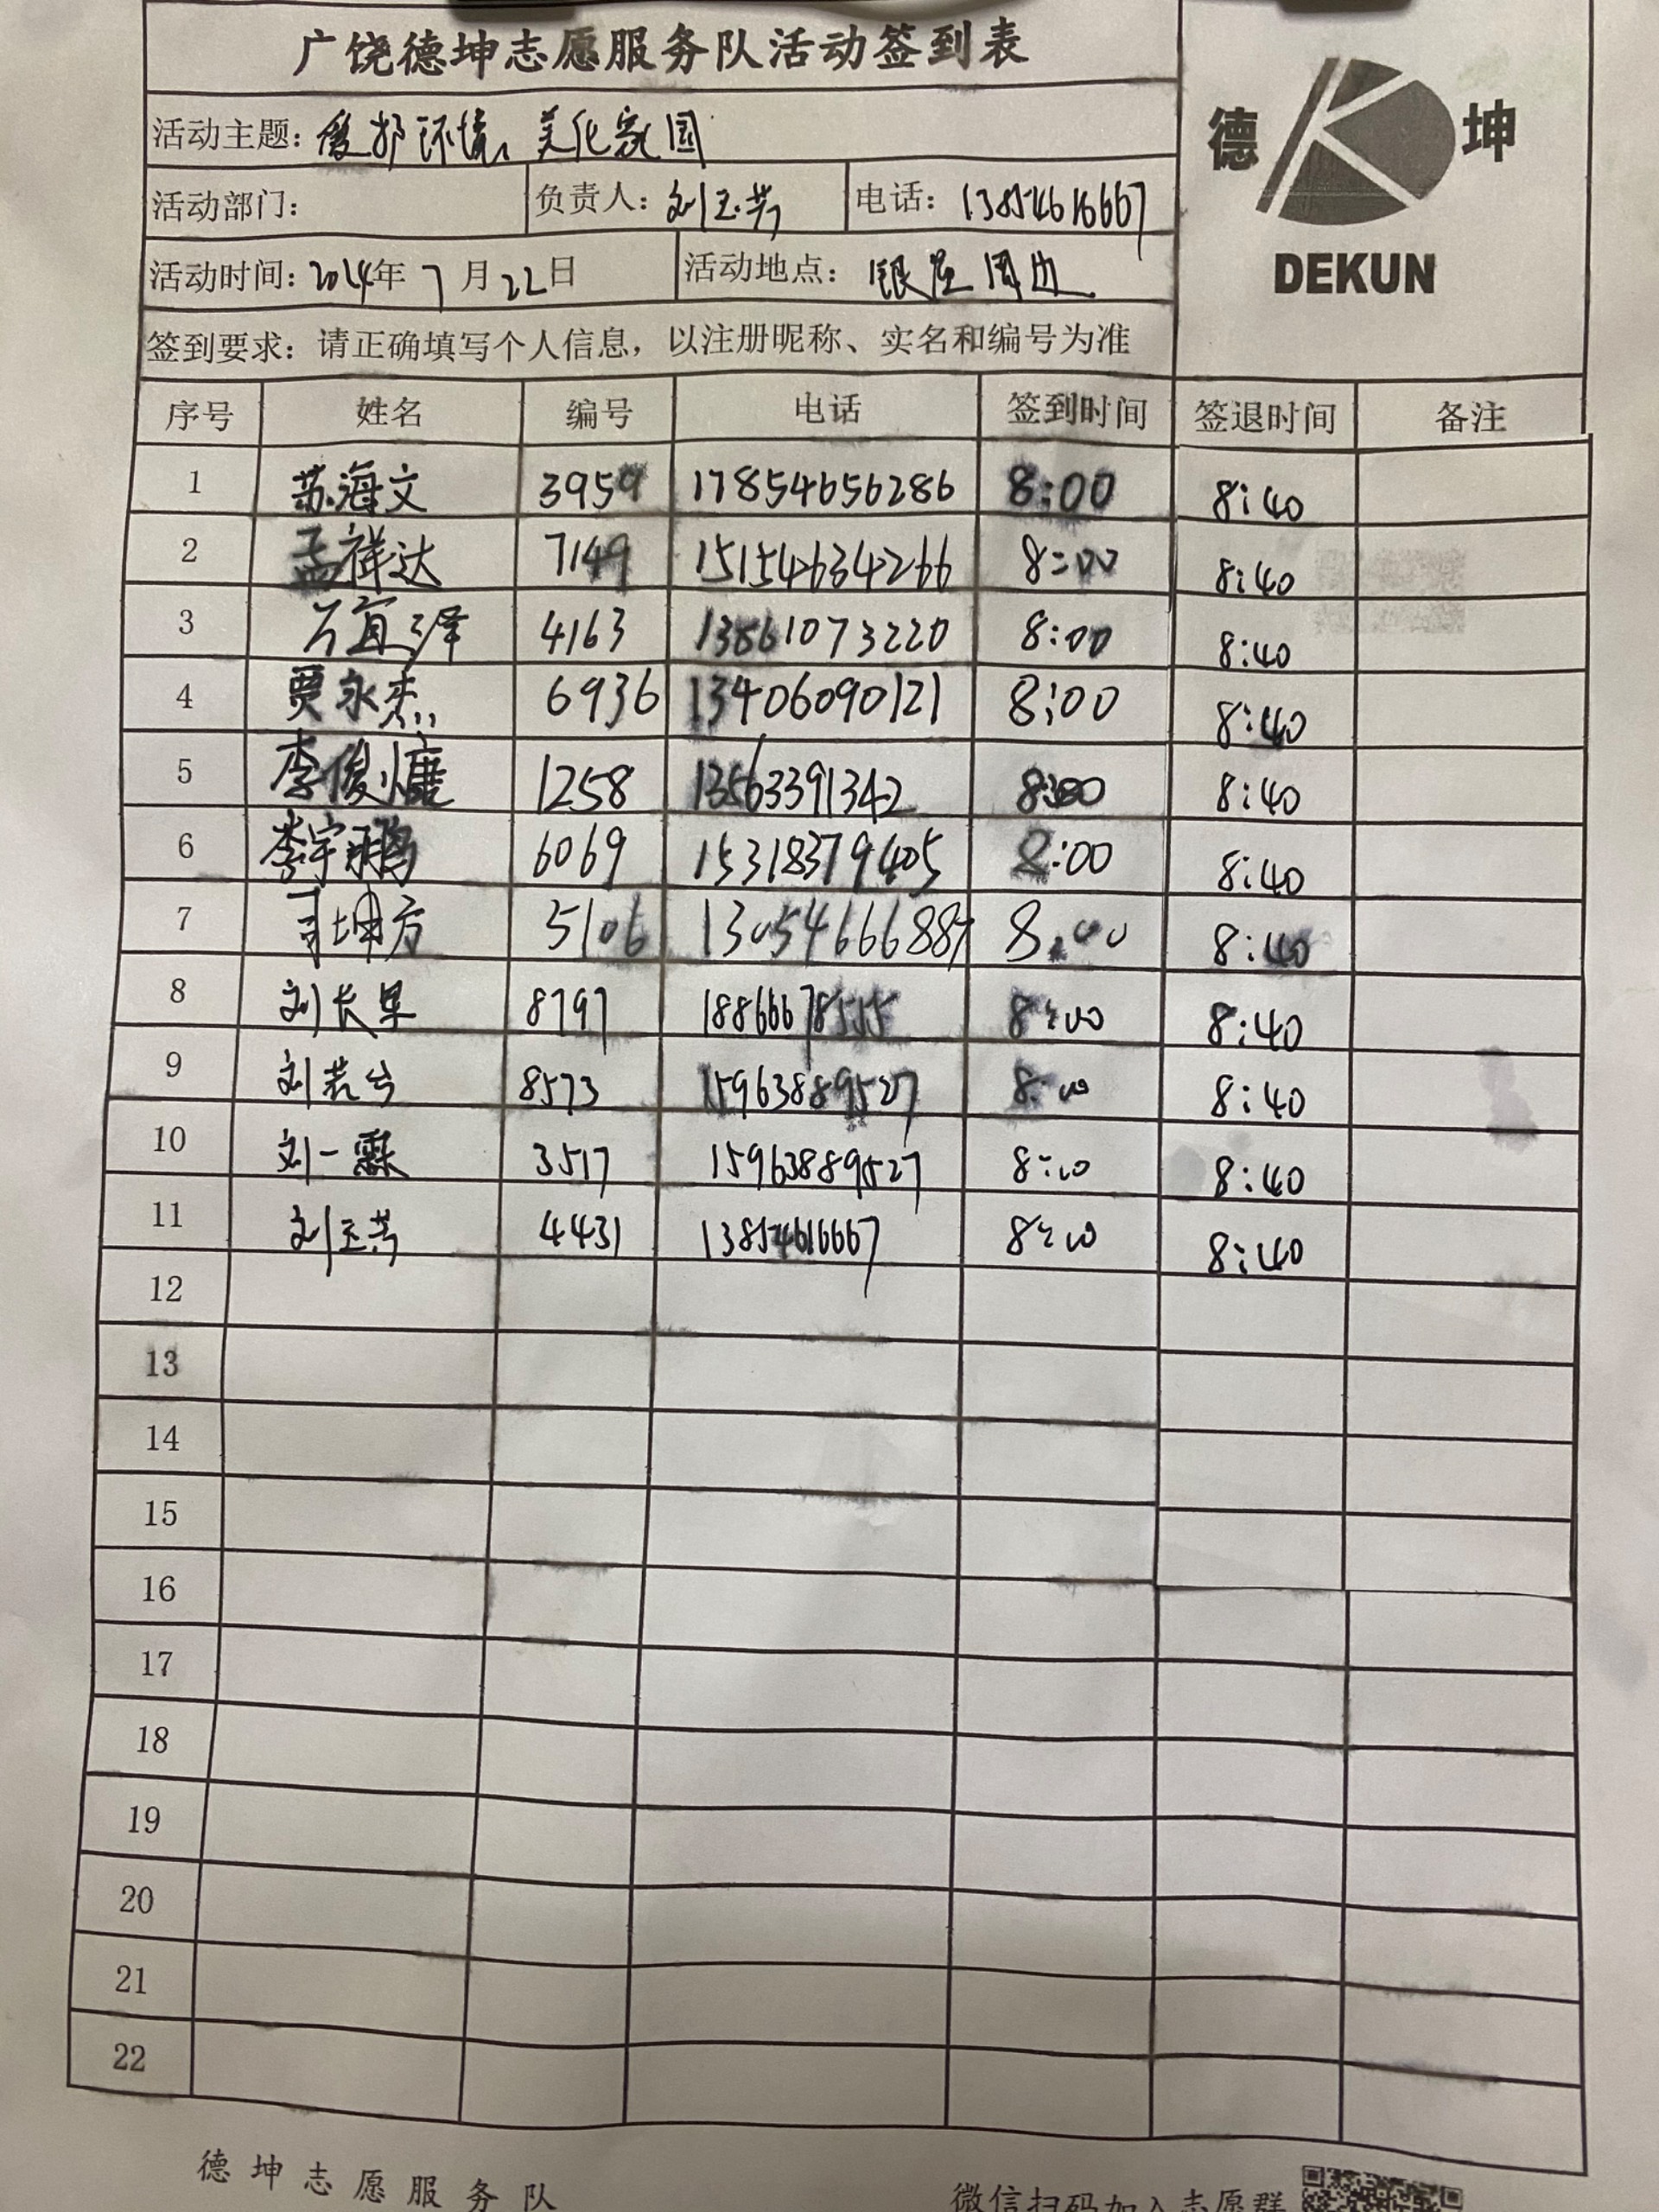 广饶德坤志愿服务队活动签到表
活动主题: 爱护环境、美化家园
德 坤
DEKUN
活动部门: 负责人: 刘玉芳 电话: 13854616667
活动时间: 2024年 7 月 22 日 活动地点: 银座周边
签到要求: 请正确填写个人信息, 以注册昵称、实名和编号为准
序号 姓名 编号 电话 签到时间 签退时间 备注
1 苏海文 3959 17854656286 8:00 8:40
2 孟祥达 7149 15154634266 8:00 8:40
3 4163 13861073220 8:00 8:40
4 贾永杰 6936 13406090121 8:00 8:40
5 李俊慷 1258 13563391342 8:00 8:40
6 李宇鹏 6069 15318379405 8:00 8:40
7 司坤方 5106 13054666887 8:00 8:40
8 8797 18866678555 8:00 8:40
9 8573 15963889527 8:00 8:40
10 刘一霖 3517 15963889527 8:00 8:40
11 刘玉芳 4431 13854616667 8:00 8:40
12
13
14
15
16
17
18
19
20
21
22
德坤志愿服务队
微信扫码加入志愿群